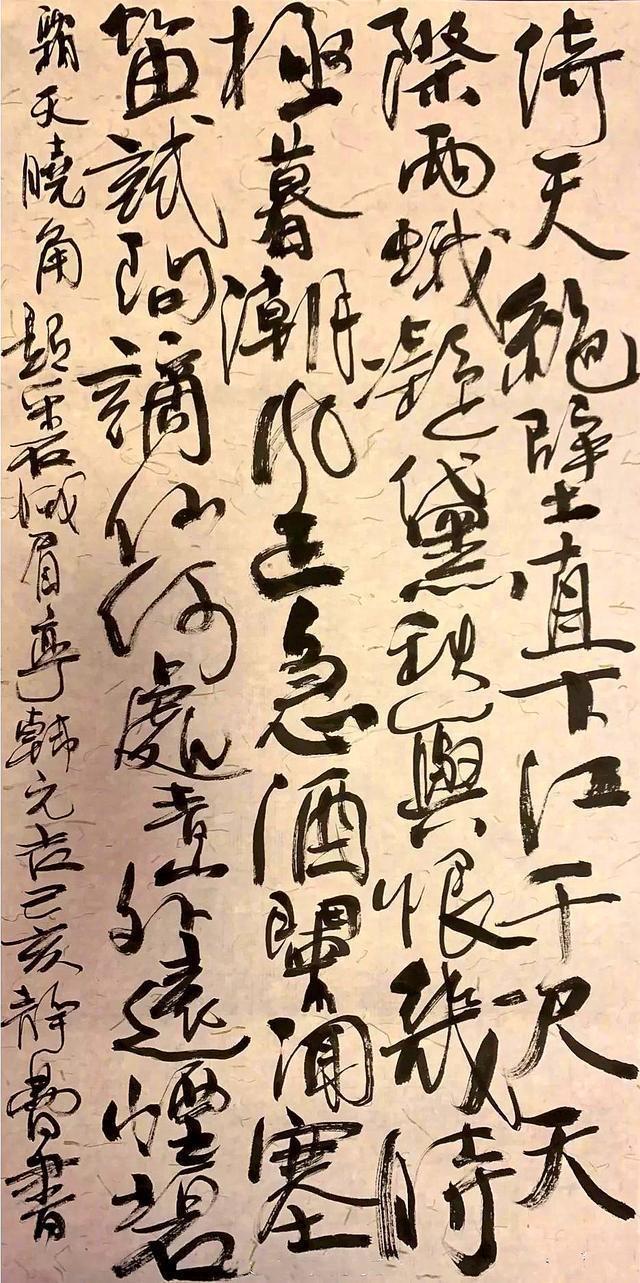 倚天絕壁直下江千尺天
際兩蛾凝黛愁與恨幾時
極暮潮風正急酒闌聞塞
笛試問謫仙何處青山外遠煙碧
霜天曉角題采石蛾眉亭韓元吉己亥靜書